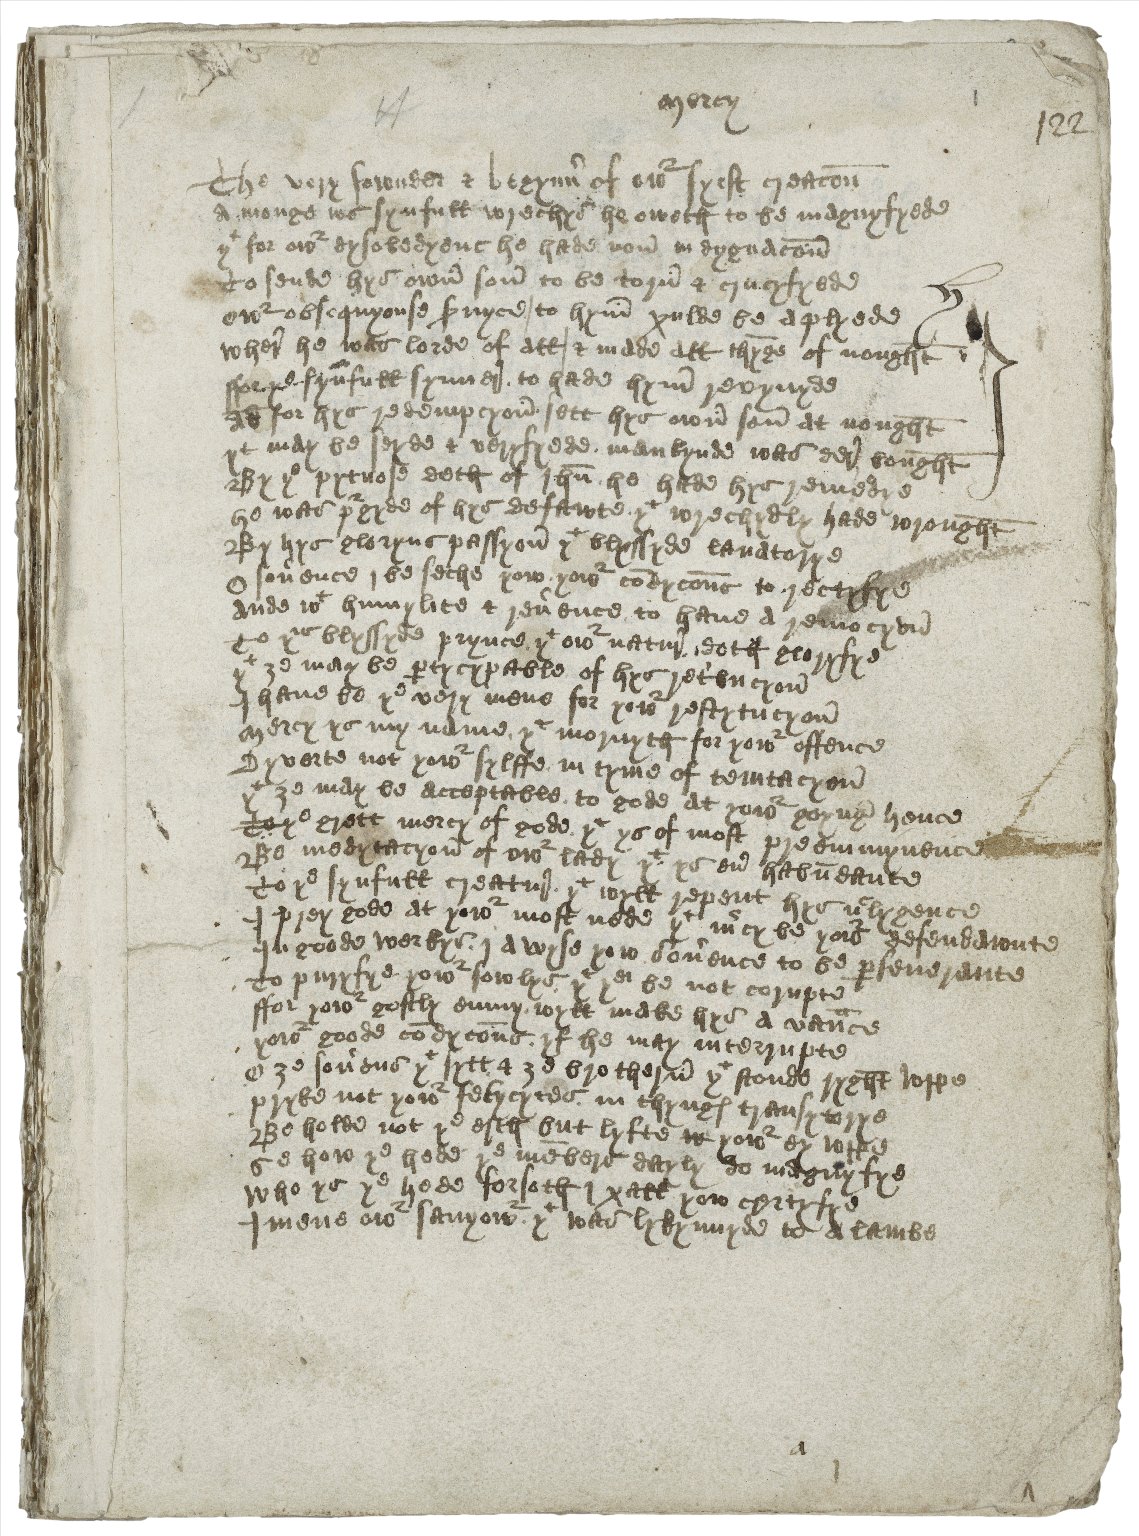 mercy
1
122
The very fownder & begynn̄ of owr fyrst creacōn
A monge ws synfull wrechys he oweth to be magnyfyede
yt for owr dysobedyenc he hade non̄ in dygnacōn
To sende hys own̄ son̄ to be torn̄ & crucyfyede
owr obsequyouse s̄uyce / to hym̄ xulde be aplyede
wher̄ he was lorde of all / & made all thynge of nought
ffor ye synfull synner̄ to hade hym̄ revyuyde
And for hys redempcyon̄ . sett hys own̄ son̄ at nought
yt may be seyde & veryfyede . mankynde was der̄ bought
By ye pytuose deth of Jhū . he hade hys remedye
he was purgyde of hys defawte . yt wrechydly hade wrought
By hys gloryus passyon̄ yt blyssyde lauatorye
O sou̕ence I be seche yow yowr cōdycōns to rectyfye
Ande wt humylite & reu̕ence to haue a remocyon̄
To yis blyssyde prynce yt owr natur̄ doth gloryfye
yt ȝe may be p̱tycypable of hys ret'bucyon̄
I haue be ye very mene for yowr restytucyon̄
mercy ys my name yt mornyth for yowr offence
Dyverte not yowr sylffe . in tyme of temtacyon̄
yt ȝe may be acceptable to gode at yowr goyng hence
To ye grett mercy of gode yt ys of most preemmynence
Be medytacyon̄ of owr lady yt ys eu̕ habūdante
To ye synfull creatur̄ . yt wyll repent hys neclygence
I prey gode at yowr most nede yt mcy be yowr defendawnte
In goode werkys I a wyse yow sou̕ence to be p̱seuerante
To puryfye yowr sowlys yt yei be not corupte
ffor yowr gostly enmy wyll make hys a vaūce
yowr goode cōdycōns . yf he may interrupte
O ȝe sou̕ens yt sytt & ȝe brothern̄ yt stonde ryght wppe
pryke not yowr felycytes . in thyngꝭ transytorye
Be holde not ye erth but lyfte yowr ey wppe
Se how ye hede ye mēbers dayly do magnyfye
who ys ye hede forsoth I xall yow certyfye
I mene owr sauyowr yt was lykynnyde to a lambe
a
1